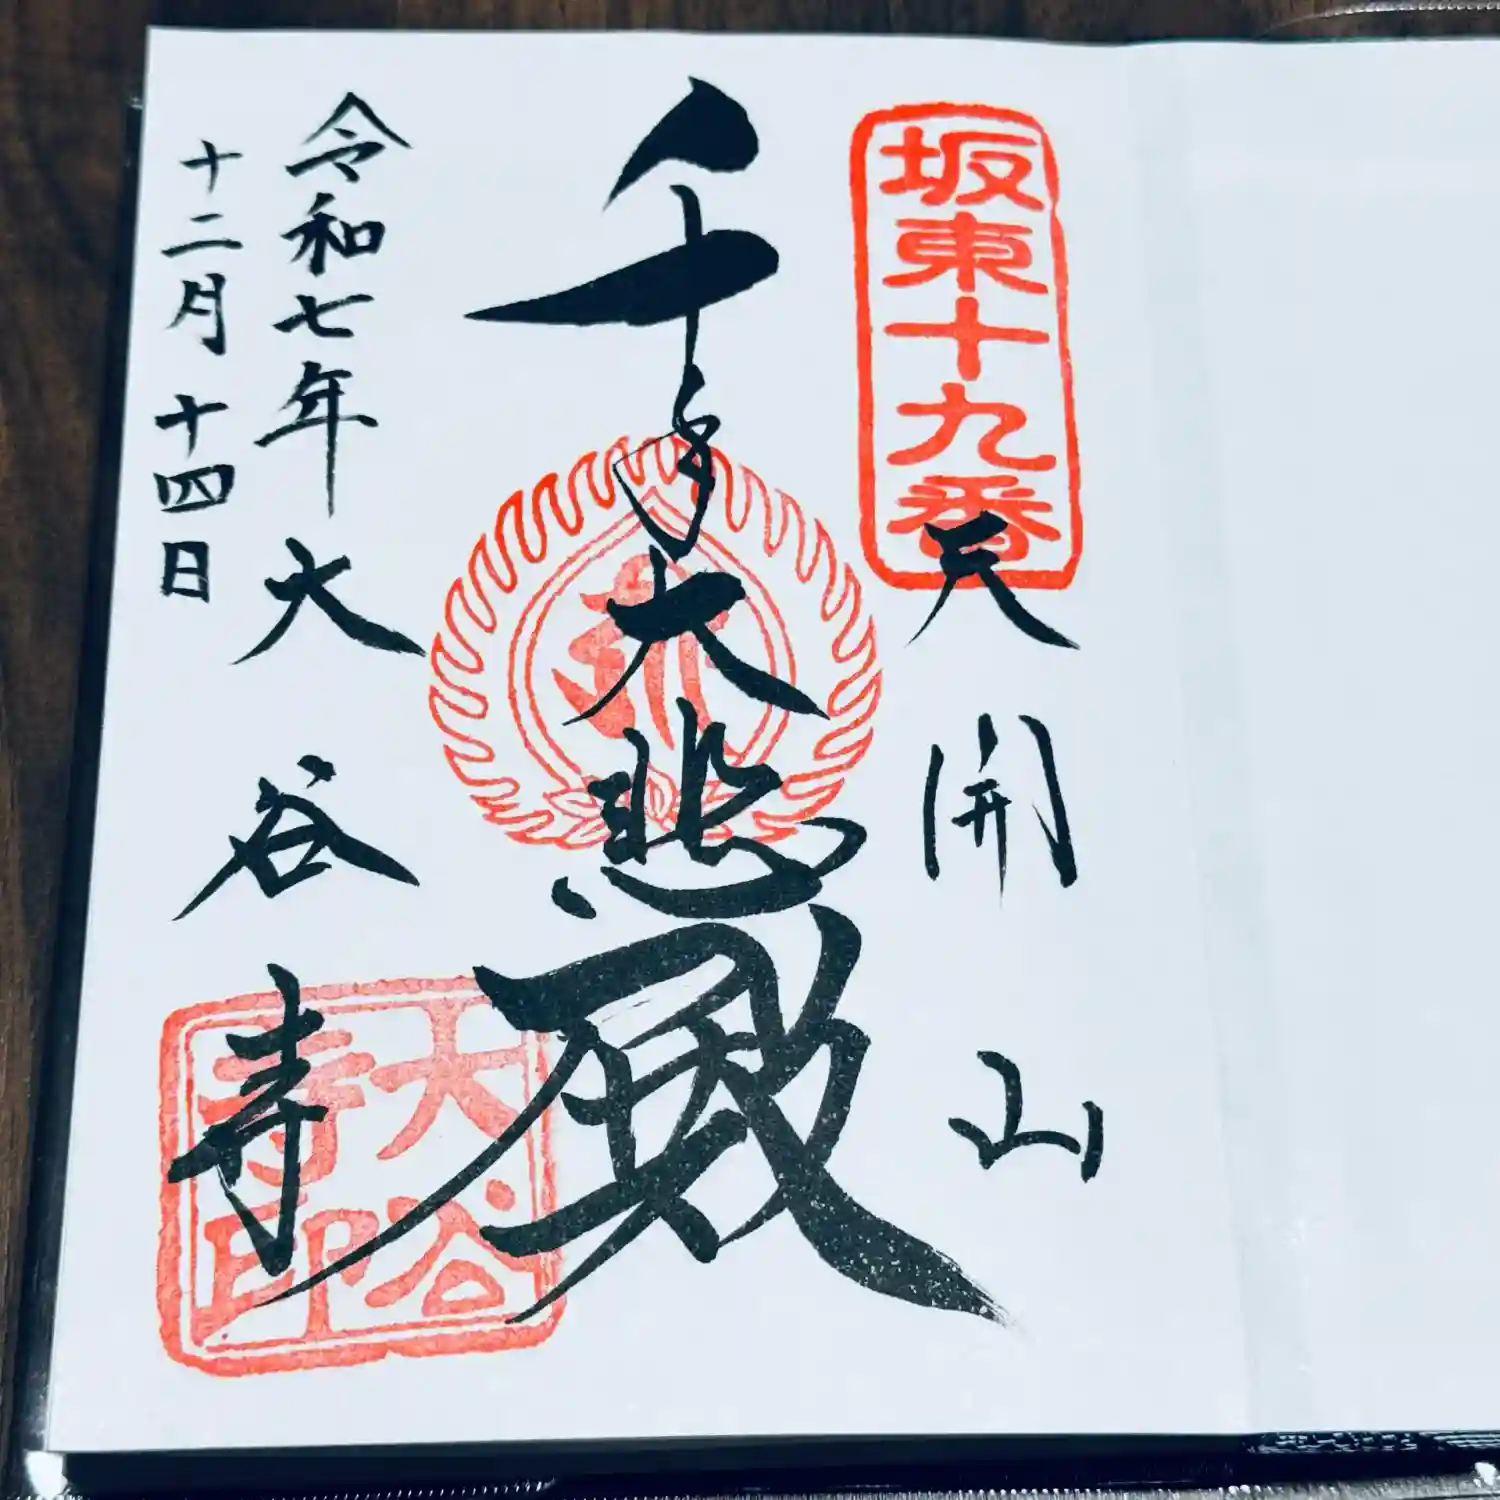 坂東十九番
天開山
千手大悲殿
令和七年
十二月十四日
大谷寺
大谷寺印